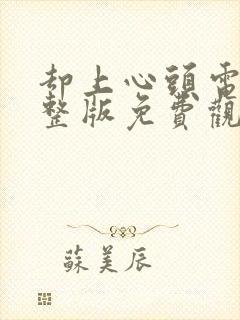 却上心頭電
整版免費觀
蘇美辰